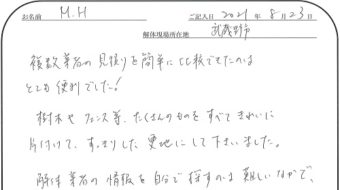 お名前 M.H ご記入日 2021年8月23日
解体現場所在地 武蔵野市
複数業者の見積りを簡単に比較できたのは
とても便利でした!
樹木やフェンス等、たくさんのものをすべてきれいに
片付けて、すっきりした更地にして下さいました。
解体業者の情報を自分で探すのは難しいなかで、